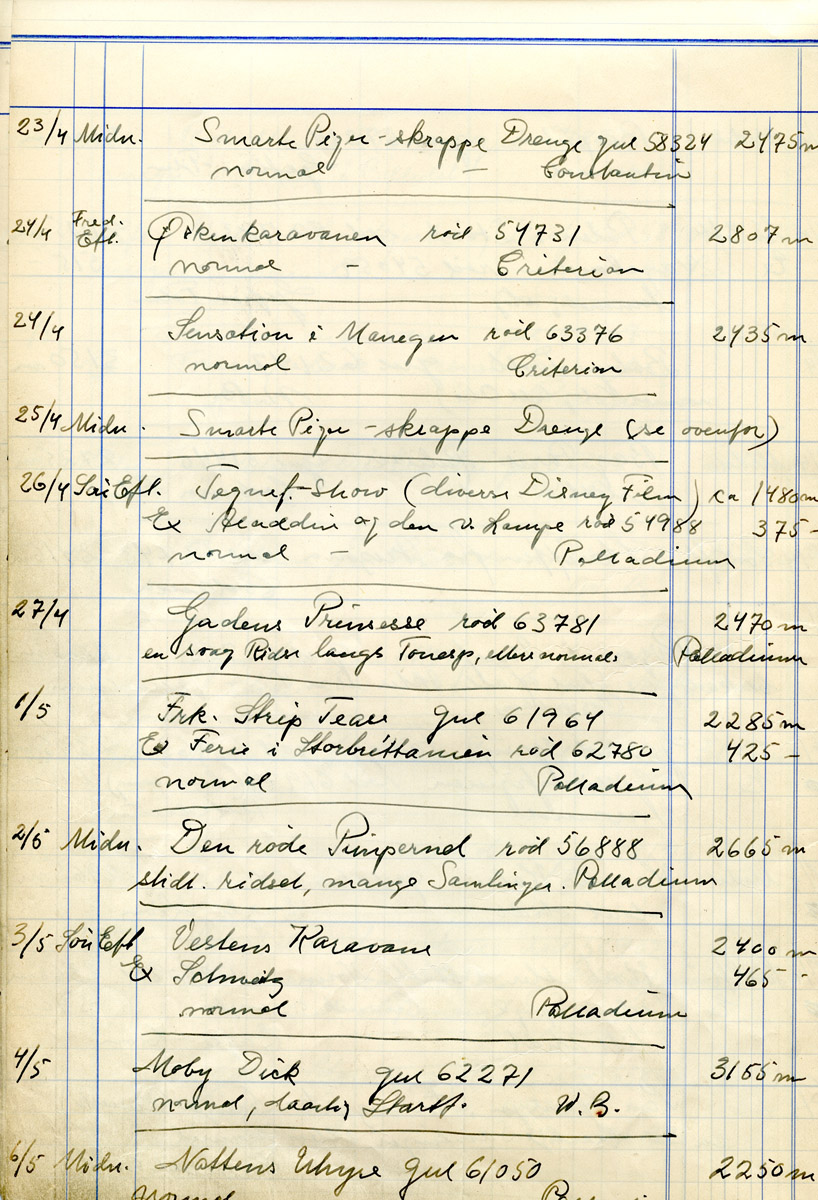 23/4 Midn. Smarte Piger - skrappe Drenge gul 58324 2475 m
normal - Constantin
24/4 Fred. Eft. Ørkenkaravanen röd 54731 2807 m
normal - Criterion
24/4 Sensation i Manegen röd 63376 2435 m
normal Criterion
25/4 Midn. Smarte Piger - skrappe Drenge (se ovenfor)
26/4 Sön Eft. Tegnef. Show (diverse Disney Film) ca 1480 m
Ex Aladdin og den v. Lampe röd 54988 375 -
normal - Palladium
27/4 Gadens Prinsesse röd 63781 2470 m
en svag Ridse langs Tonesp, ellers normal. Palladium
1/5 Frk. Strip Tease gul 61964 2285 m
Ex Ferie i Storbrittanien röd 62780 425 -
normal Palladium
2/5 Midn. Den røde Pimpernel röd 56888 2665 m
slidt. ridset, mange Samlinger. Palladium
3/5 Sön Eft Vestens Karavane 2400 m
Ex Schweitz 465 -
normal Palladium
4/5 Moby Dick gul 62271 3155 m
normal, daarlig Startf. W.B.
6/5 Midn. Nattens Uhyre gul 61050 2250 m
normal